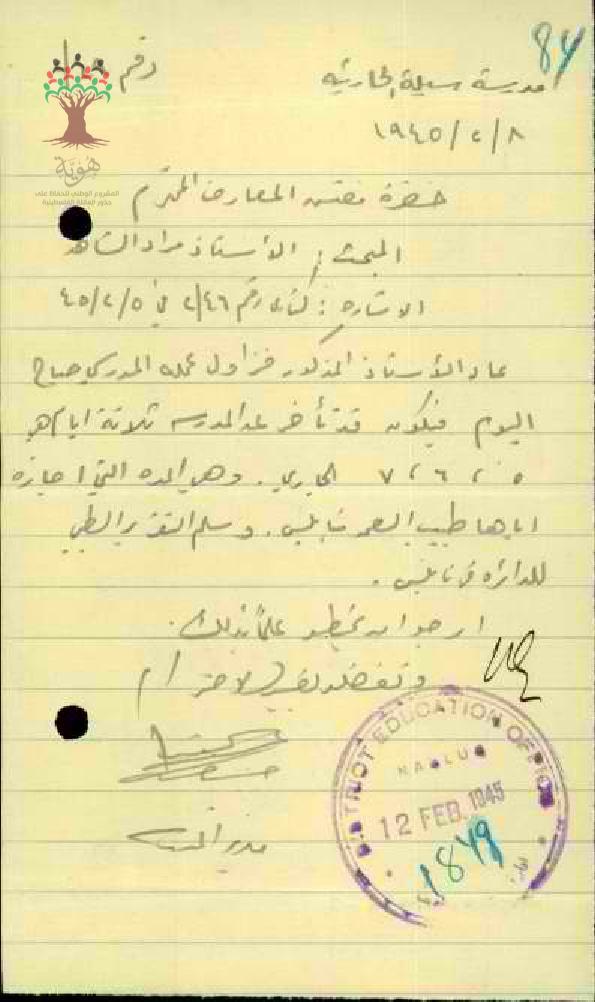 84
مدرسة سيلة الحارثيه
رقم
١٩٤٥/٢/٨
هُويَّة
المشروع الوطني للحفاظ على
جذور العائلة الفلسطينية
حضرة مفتش المعارف المحترم
المبحث: الأستاذ مراد
الاشارة: كتابي رقم ٢/٤٦ في ٤٥/٢/٥
عاد الأستاذ المذكور فزاول عمله المدرسي صباح
اليوم فيكون قد تأخر عن المدرسه ثلاثة ايام هي
٥، ٦، ٧ الجاري. وهي المده التي اجازه
اياها طبيب الصحه نابلس. وسلم التقرير الطبي
للدائره في نابلس.
ارجو ان تحيطو علماً بذلك.
وتفضلو بقبول الاحترام
مدير المدرسه
DISTRICT EDUCATION OFFICE
NABLUS
12 FEB. 1945
1849